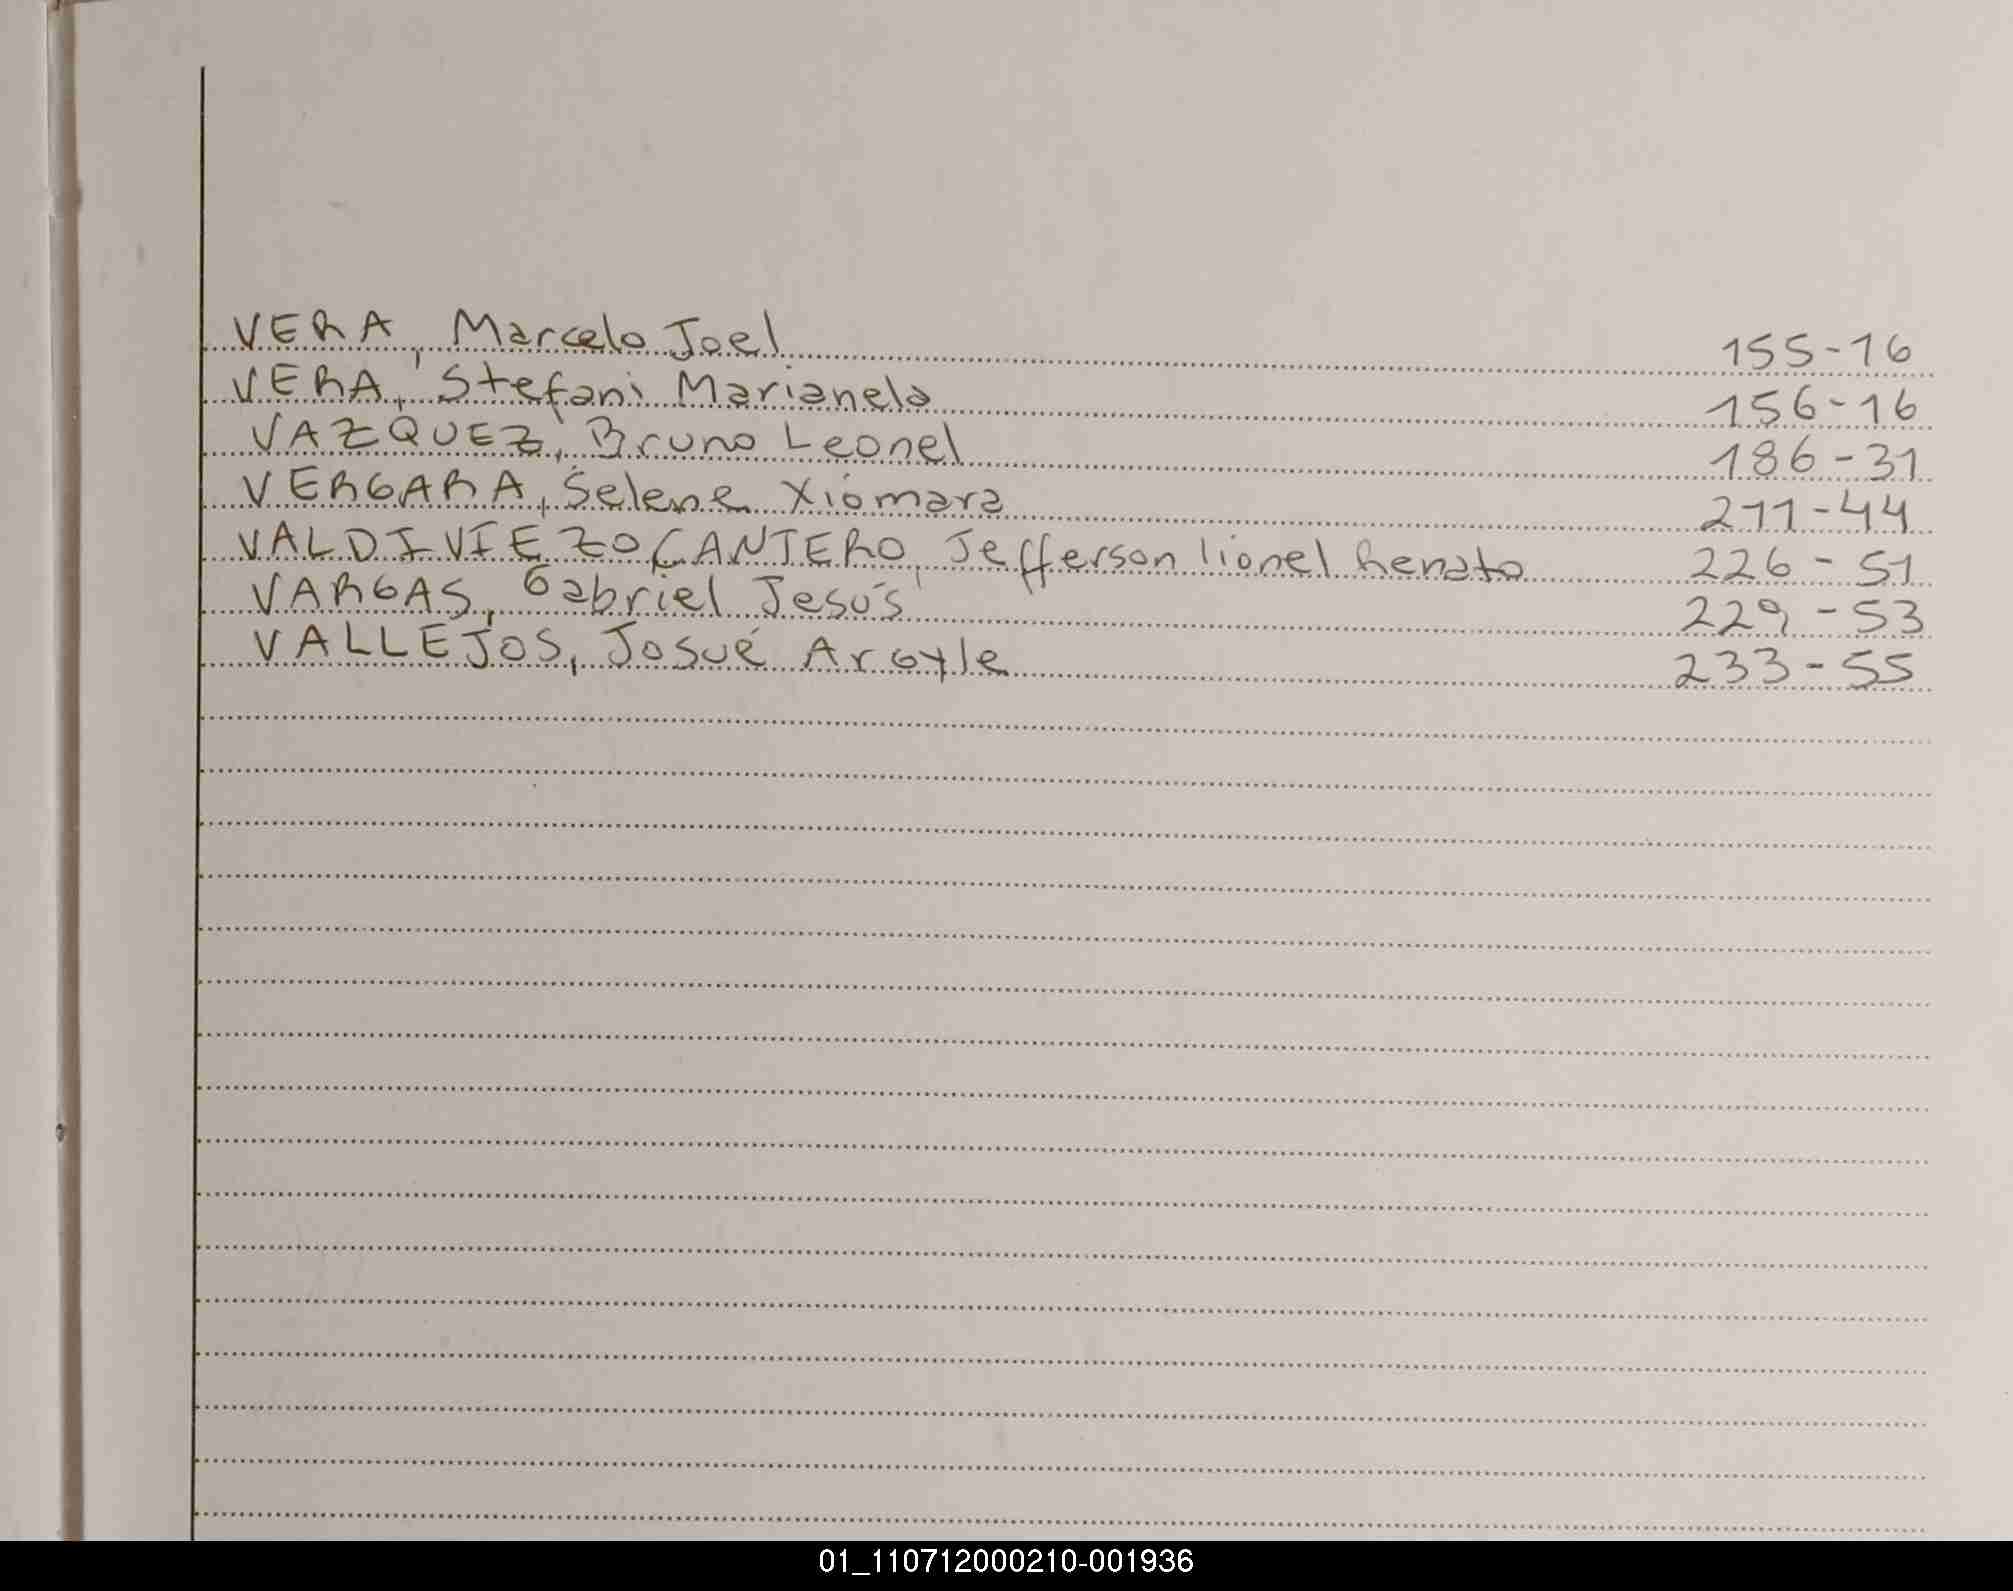 VERA, Marcelo Joel 155-16
VERA, Stefani Marianela 156-16
VAZQUEZ, Bruno Leonel 186-31
VERGARA, Selene Xiomara 211-44
VALDIVIEZO CANTERO, Jefferson lionel Renato 226-51
VARGAS, Gabriel Jesús 229-53
VALLEJOS, Josué Argyle 233-55
01_110712000210-001936